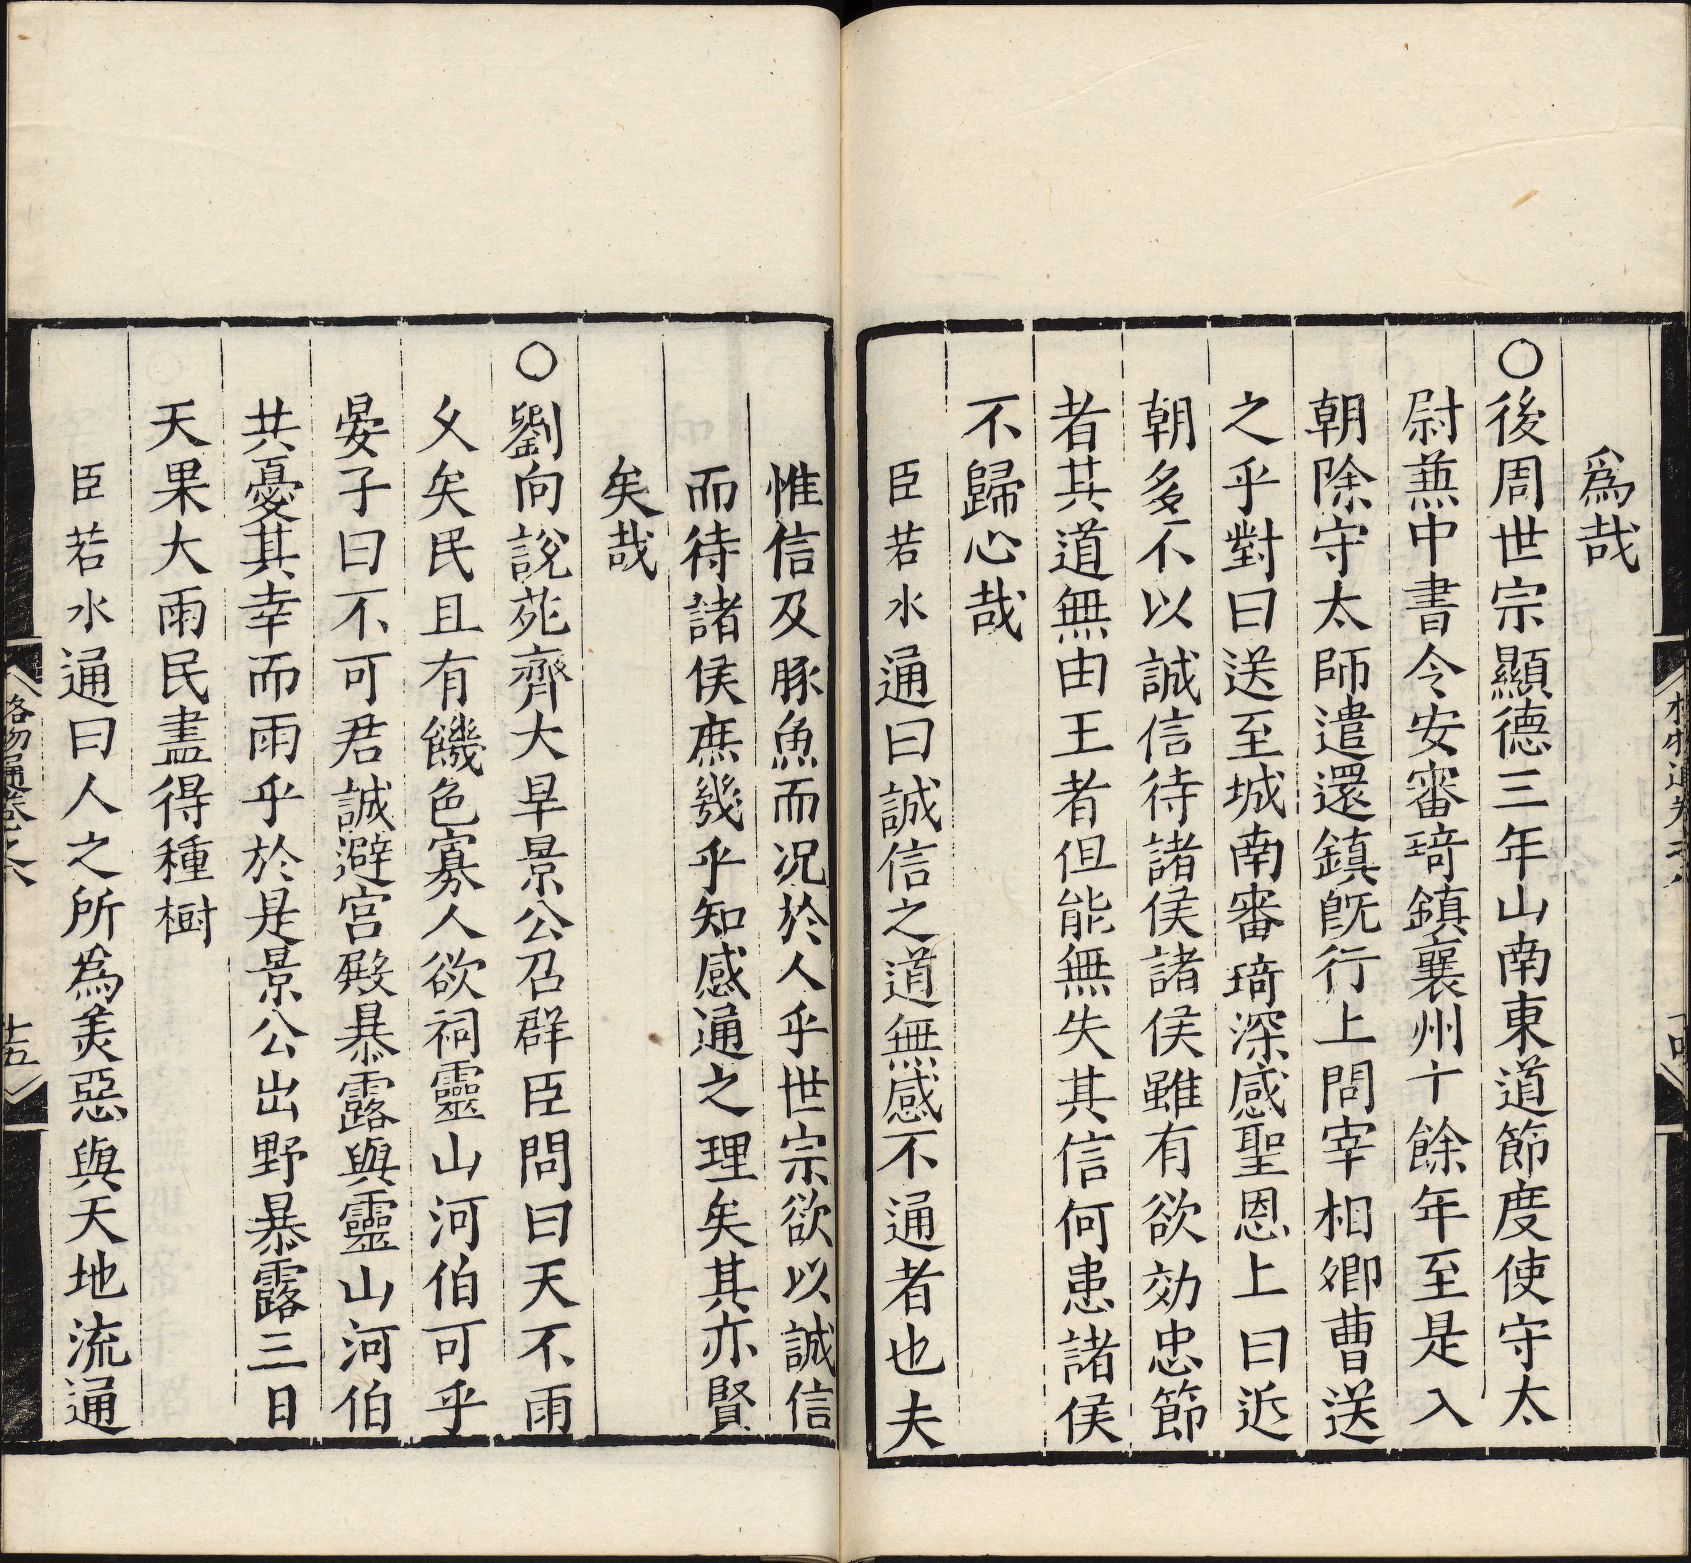 爲哉
○後周世宗顯德三年山南東道節度使守太
尉蕪中書令安審琦鎮襄州十餘年至是入
朝除守太師遣還鎮旣行上問宰相卿曹送
之乎對曰送至城南審琦深感聖恩上曰近
朝多不以誠信待諸侯諸侯雖有欲効忠節
者其道無由王者但能無失其信何患諸侯
不歸心哉
臣若水通曰誠信之道無感不通者也夫
惟信及豚魚而况於人乎世宗欲以誠信
而待諸侯庶幾乎知感通之理矣其亦賢
矣哉
○劉向說苑齊大旱景公召群臣問曰天不雨
乆矣民且有饑色寡人欲祠靈山河伯可乎
晏子曰不可君誠避宫殿暴露與靈山河伯
共憂其幸而雨乎於是景公出野暴露三日
天果大雨民盡得種樹
臣若水通曰人之所爲美惡與天地流通
格物通卷之六
十五